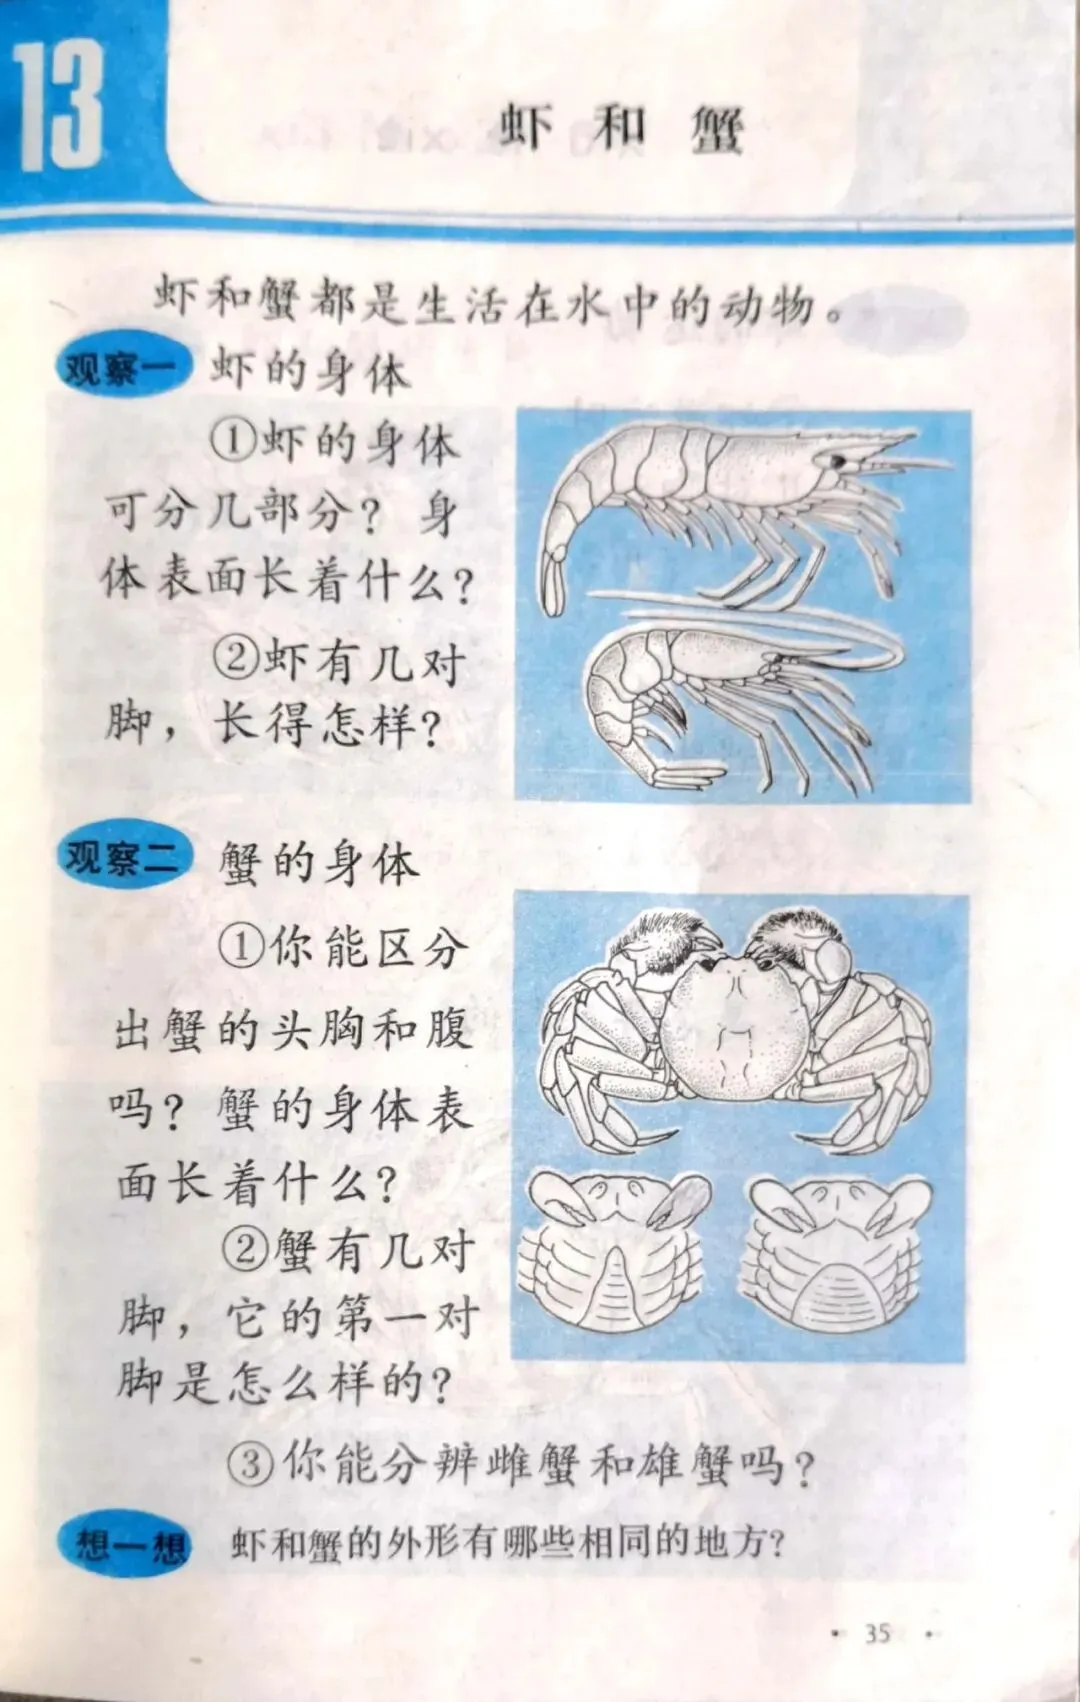 13
虾和蟹
虾和蟹都是生活在水中的动物。
观察一 虾的身体
①虾的身体
可分几部分？身
体表面长着什么？
②虾有几对
脚，长得怎样？
观察二 蟹的身体
①你能区分
出蟹的头胸和腹
吗？蟹的身体表
面长着什么？
②蟹有几对
脚，它的第一对
脚是怎么样的？
③你能分辨雌蟹和雄蟹吗？
想一想 虾和蟹的外形有哪些相同的地方？
· 35 ·